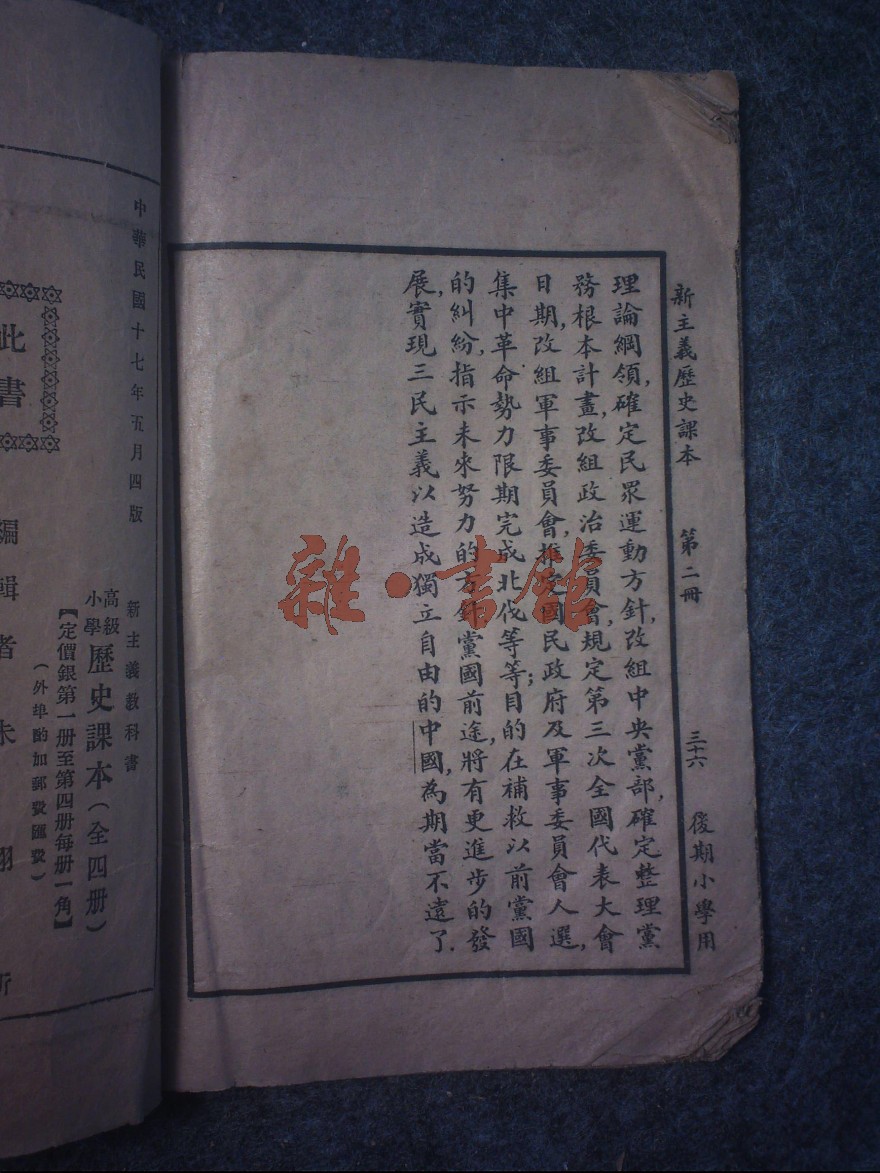 新主義歷史課本 第二冊 三十六 後期小學用
理論綱領,確定民眾運動方針,改組中央黨部,確定整理黨
務根本計畫,改組政治委員會,規定第三次全國代表大會
日期,改組軍事委員會,推定國民政府及軍事委員會人選,
集中革命勢力限期完成北伐等等;目的在補救以前黨國
的糾紛,指示未來努力的方針,黨國前途,將有更進步的發
展,實現三民主義以造成獨立自由的中國,為期當不遠了.
雜·書館
中華民國十七年五月四版
新主義教科書
高級小學 歷史課本(全四册)
【定價銀第一册至第四册每册一角】
(外埠酌加郵費匯費)
此書
編輯者 朱翊